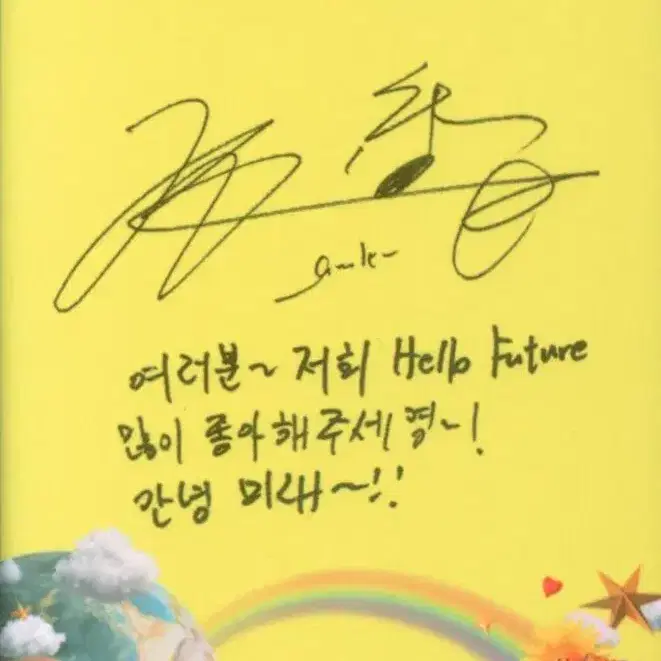 여러분~ 저희 Hello Future
많이 좋아해주세영~!
안녕 미래~!!